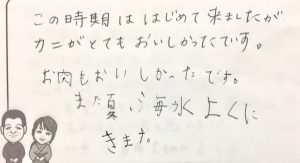 この時期は はじめて来ましたが
カニがとてもおいしかったです。
お肉もおいしかったです。
また夏い海水よくに
きます。